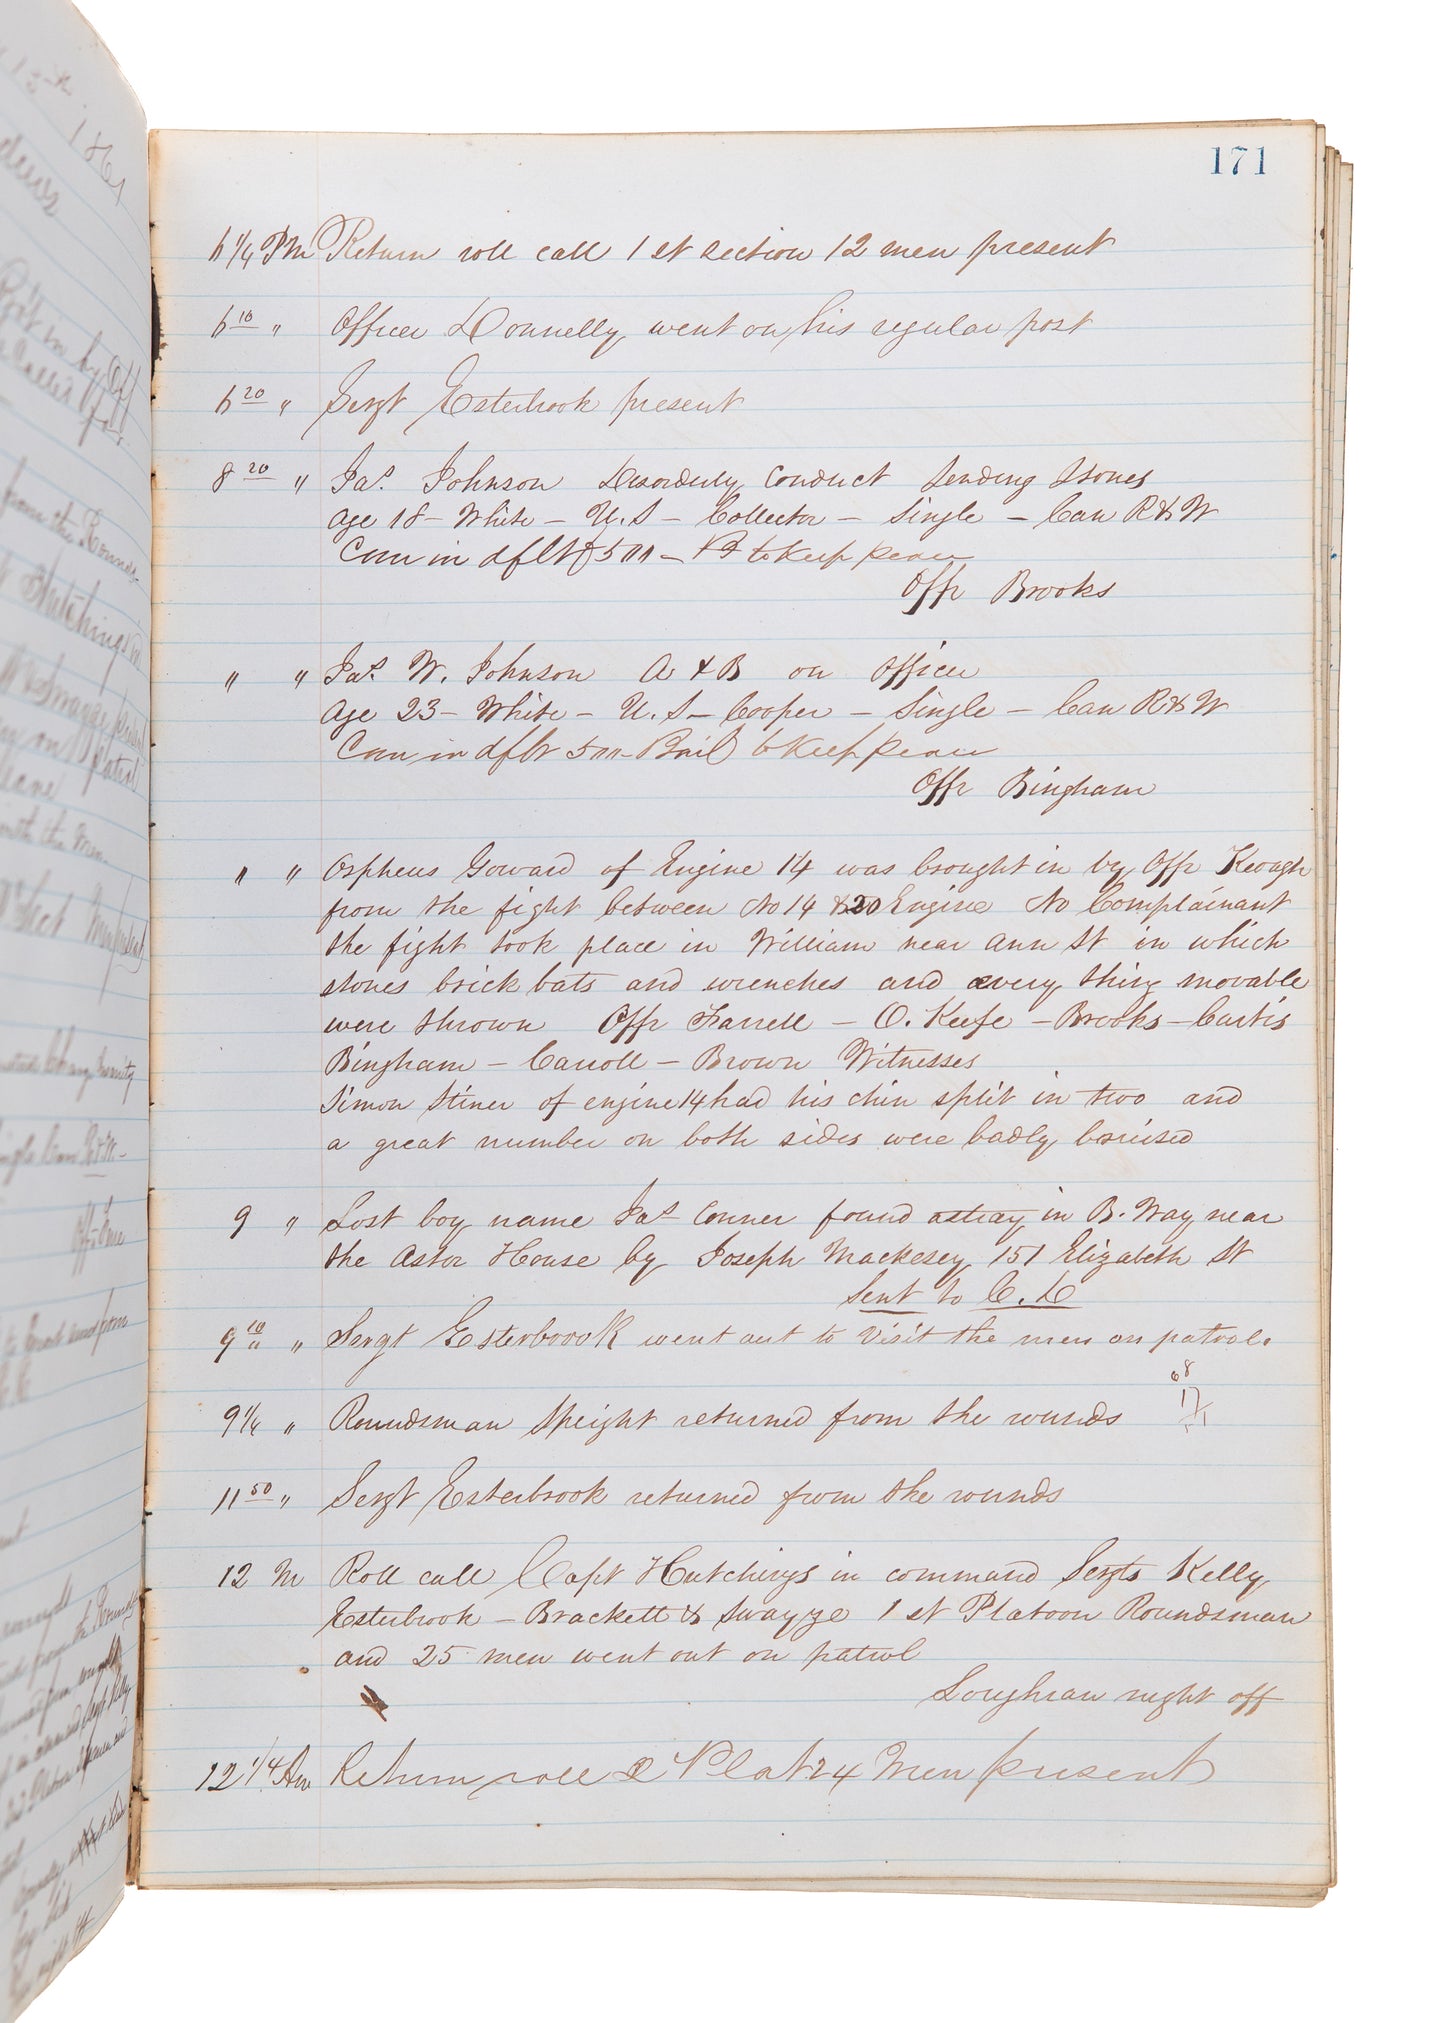 171
6 1/4 PM Return roll call 1st section 12 men present
6 10 " Officer Donnelly went on his regular post
6 20 " Sergt Esterbrook present
8 20 " Jas. Johnson Disorderly Conduct Sending Stones
Age 18 - White - U.S - Collector - Single - Can R & W
Com in dflt $500 - to keep peace
Offr Brooks
" " Jas. W. Johnson A & B on Officer
Age 23 - White - U.S - Cooper - Single - Can R & W
Com in dflt 500 - Bail to keep peace
Offr Bingham
" " Orpheus Goward of Engine 14 was brought in by Offr Keough
from the fight between No 14 & 20 Engine No Complainant
the fight took place in William near Ann St in which
stones brick bats and wrenches and every thing movable
were thrown Offr Farrell - O. Keefe - Brooks - Curtis
Bingham - Carroll - Brown Witnesses
Simon Stiner of engine 14 had his chin split in two and
a great number on both sides were badly bruised
9 " Lost boy name Jas Conner found astray in B. Way near
the Astor House by Joseph Mackesey 151 Elizabeth St
Sent to C. D
9 10 " Sergt Esterbrook went out to visit the men on patrol.
68
171
9 1/4 " Roundsman Speight returned from the rounds
11 50 " Sergt Esterbrook returned from the rounds
12 M Roll call Capt Hutchings in command Sergts Kelly
Esterbrook - Brackett & Swayze 1st Platoon Roundsman
and 25 men went out on patrol
Loughran night off
12 1/4 Am Return roll 2 Plat 24 Men present